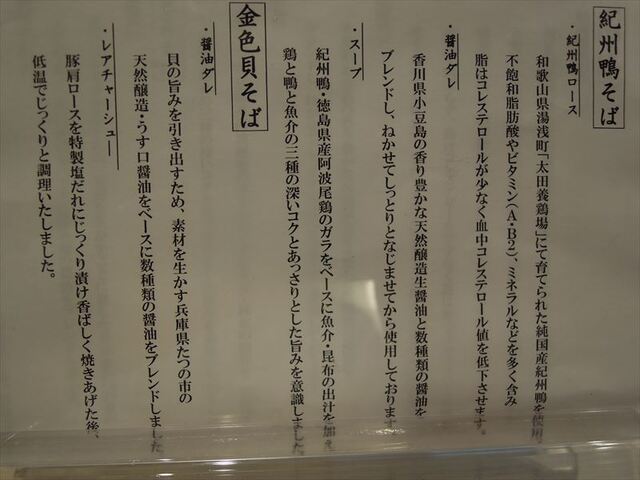 紀州鴨そば
・紀州鴨ロース
和歌山県湯浅町「太田養鶏場」にて育てられた純国産紀州鴨を使用。
不飽和脂肪酸やビタミン(A・B2)、ミネラルなどを多く含み
脂はコレステロールが少なく血中コレステロール値を低下させます。
・醤油ダレ
香川県小豆島の香り豊かな天然醸造生醤油と数種類の醤油を
ブレンドし、ねかせてしっとりとなじませてから使用しております
・スープ
紀州鴨・徳島県産阿波尾鶏のガラをベースに魚介・昆布の出汁を加え
鶏と鴨と魚介の三種の深いコクとあっさりとした旨みを意識しました
金色貝そば
・醤油ダレ
貝の旨みを引き出すため、素材を生かす兵庫県たつの市の
天然醸造・うす口醤油をベースに数種類の醤油をブレンドしました
・レアチャーシュー
豚肩ロースを特製塩だれにじっくり漬け香ばしく焼きあげた後、
低温でじっくりと調理いたしました。